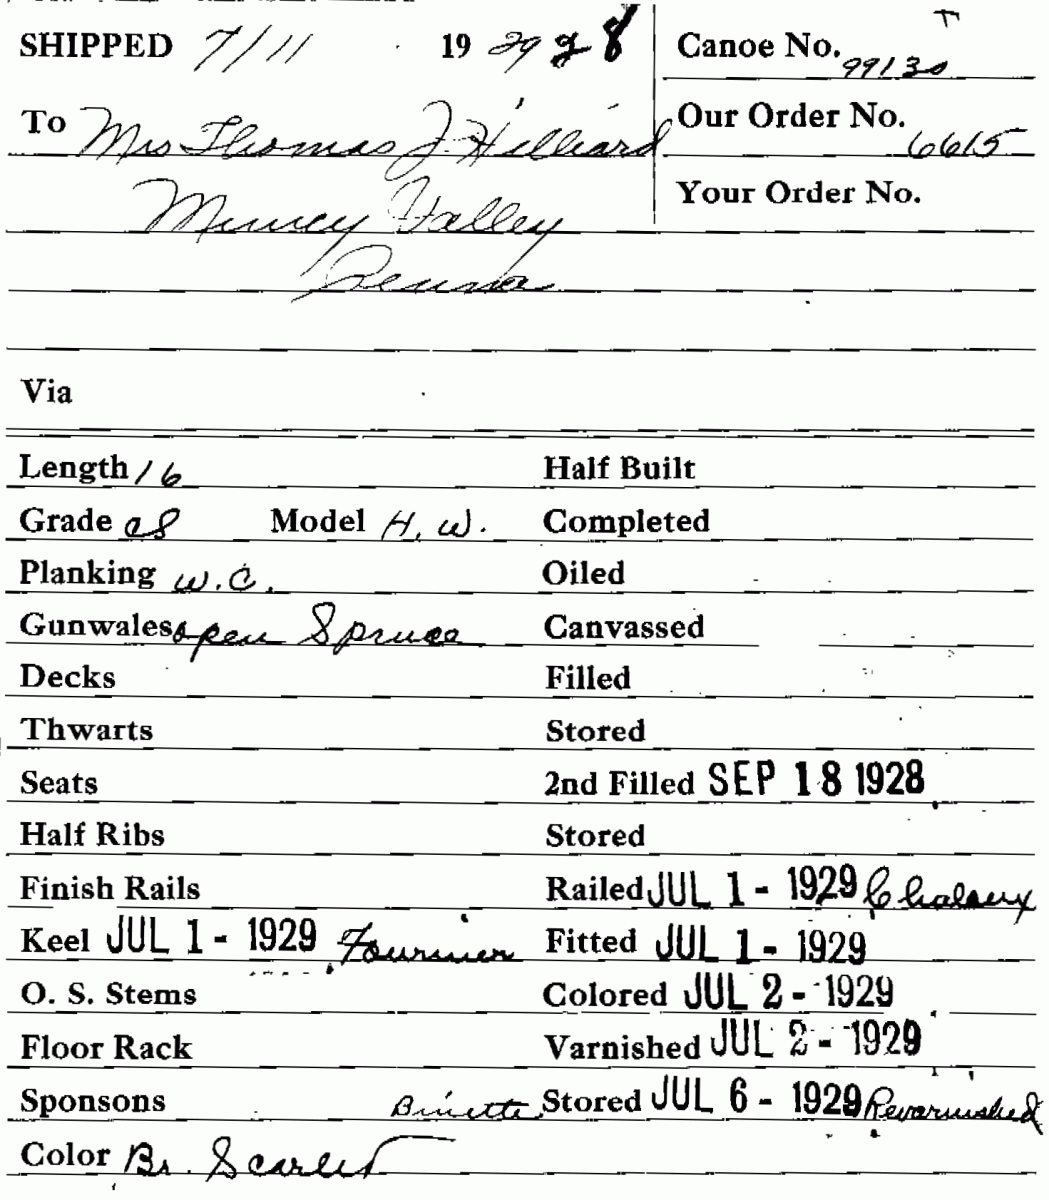 SHIPPED 7/11 19 29 28 Canoe No. 99130
To Mrs Thomas J. Hilliard Our Order No. 6615
Muncy Valley Your Order No.
Penna
Via
Length 16 Half Built
Grade CS Model H. W. Completed
Planking W. C. Oiled
Gunwales open Spruce Canvassed
Decks Filled
Thwarts Stored
Seats 2nd Filled SEP 18 1928
Half Ribs Stored
Finish Rails Railed JUL 1 - 1929 Chaloux
Keel JUL 1 - 1929 Fournier Fitted JUL 1 - 1929
O. S. Stems Colored JUL 2 - 1929
Floor Rack Varnished JUL 2 - 1929
Sponsons Binette Stored JUL 6 - 1929 Revarnished
Color Br. Scarlet